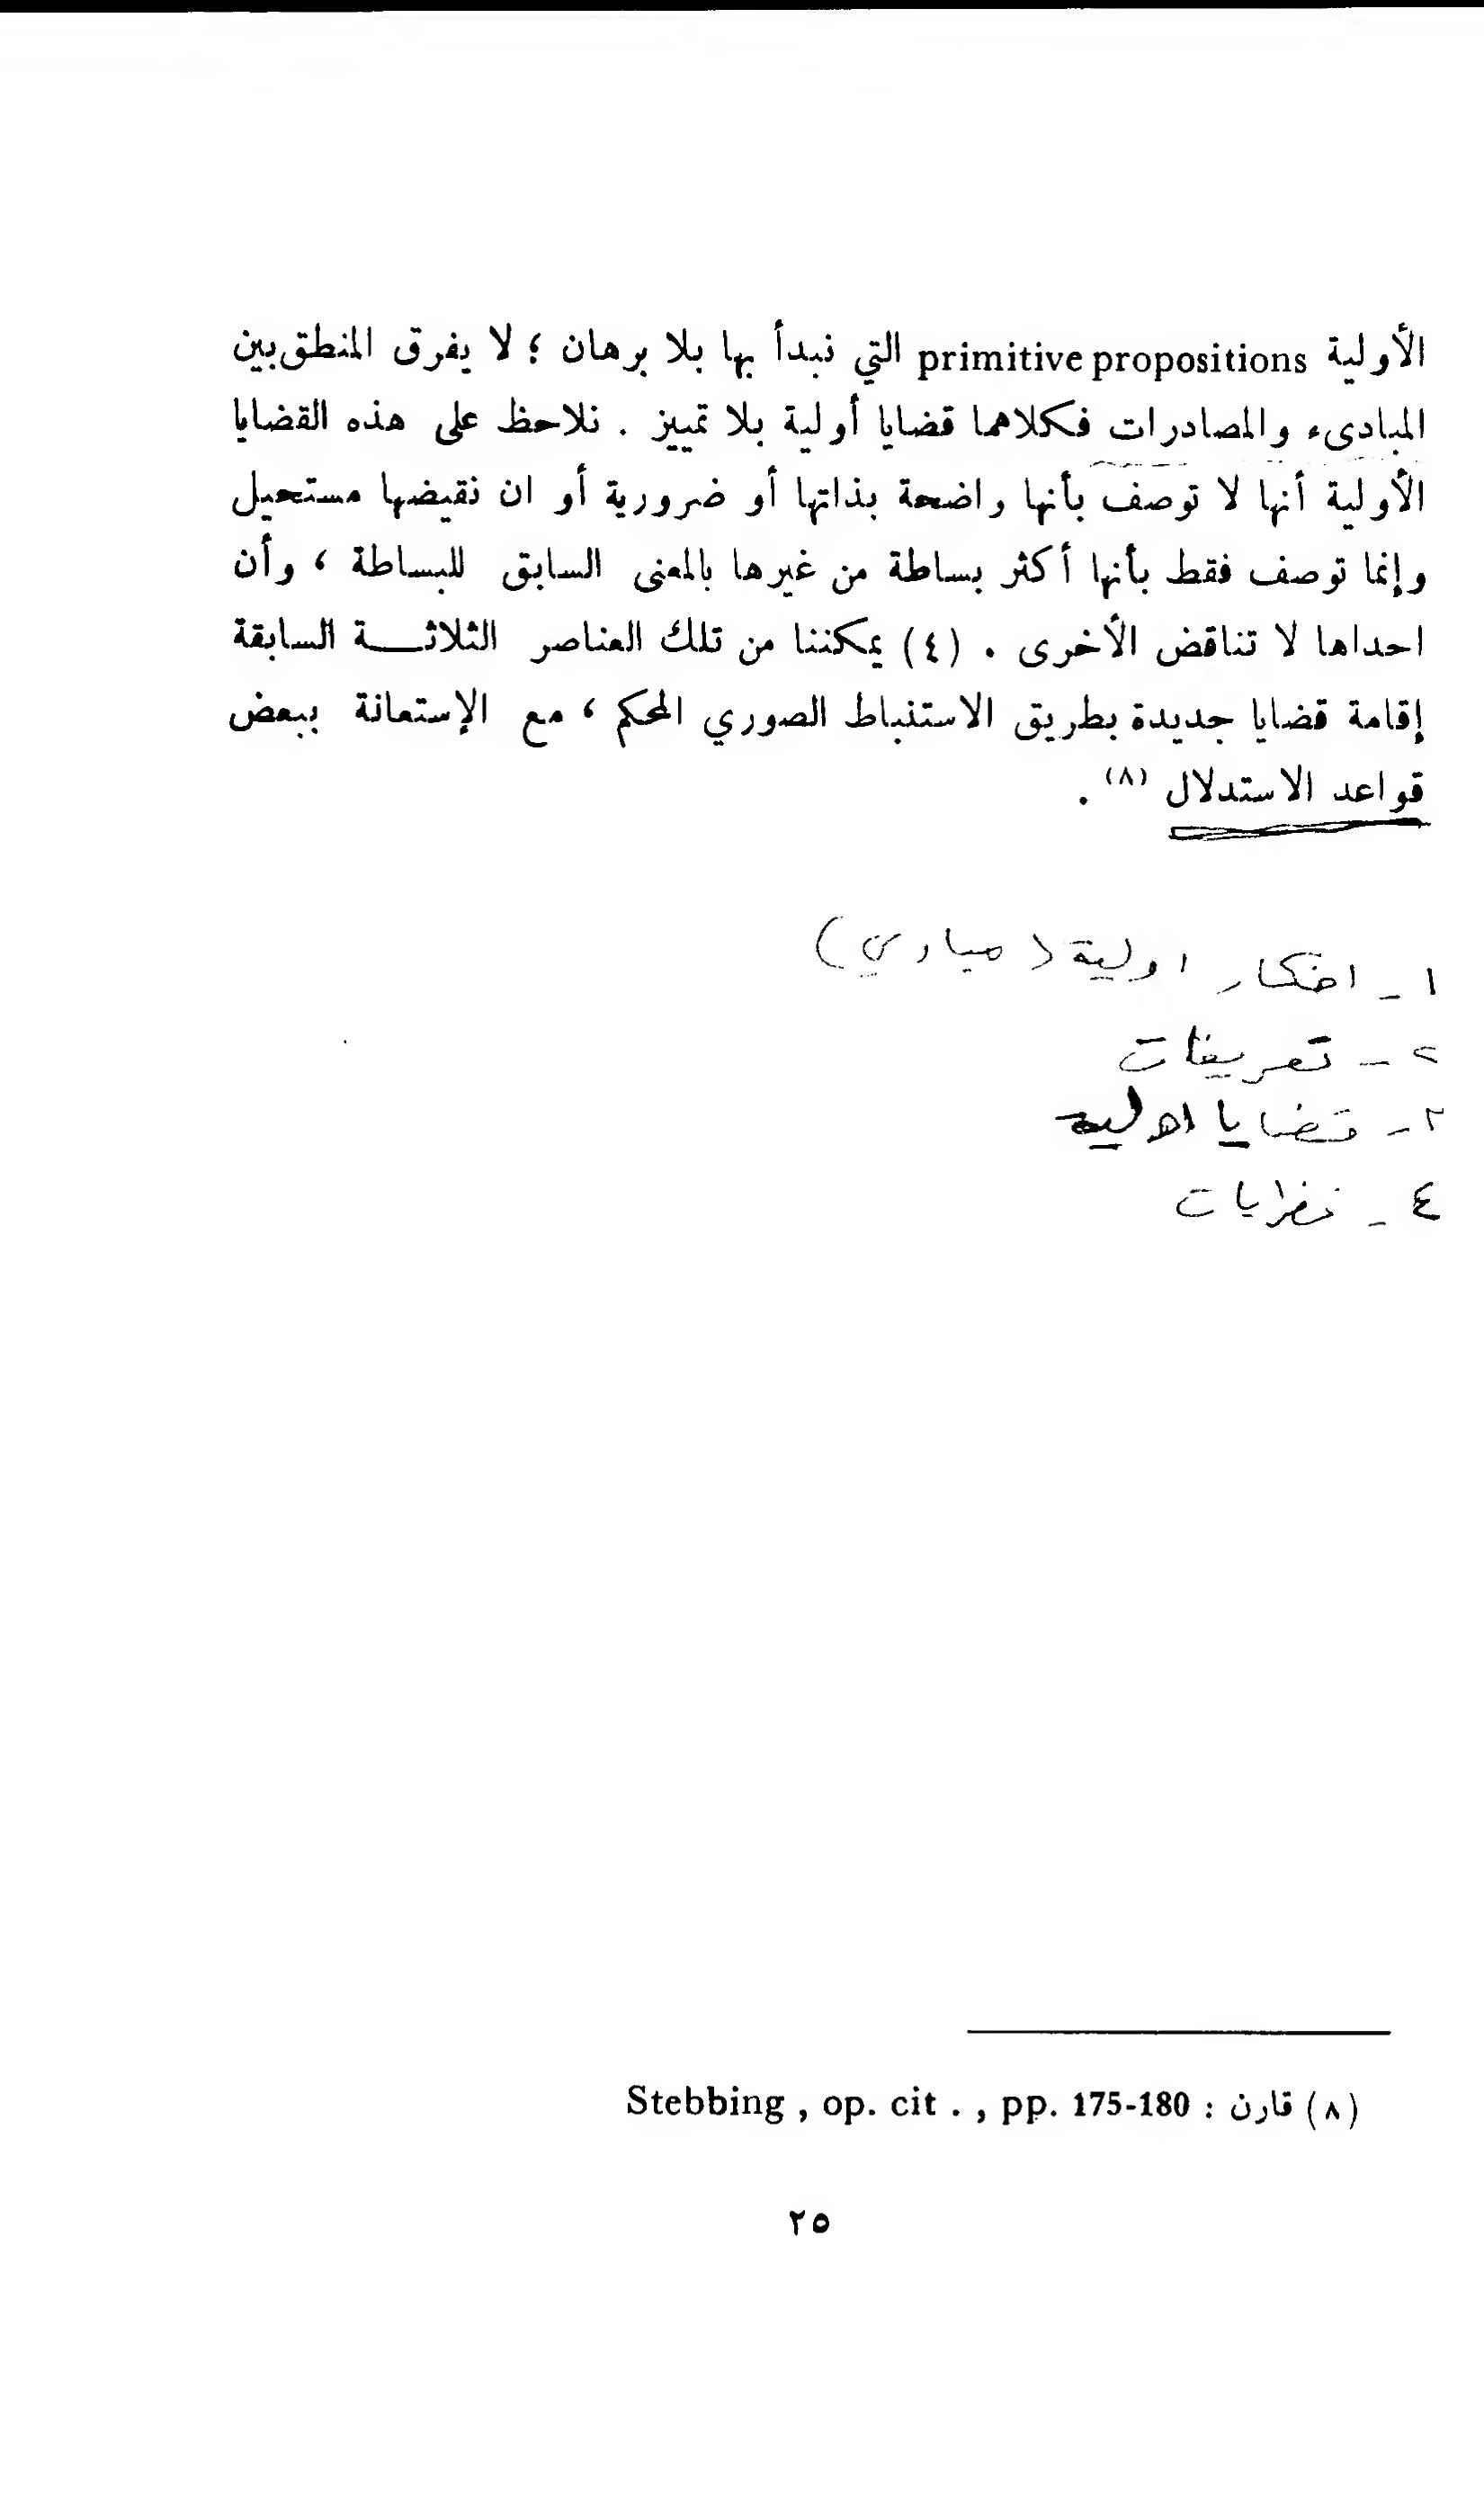 الأولية primitive propositions التي نبدأ بها بلا برهان ؛ لا يفرق المنطق بين
المبادىء والمصادرات فكلاهما قضايا أولية بلا تمييز . نلاحظ على هذه القضايا
الأولية أنها لا توصف بأنها واضحة بذاتها أو ضرورية أو ان نقيضها مستحيل
وإنما توصف فقط بأنها أكثر بساطة من غيرها بالمعنى السابق للبساطة ، وأن
احداها لا تناقض الأخرى . (٤) يمكننا من تلك العناصر الثلاثــة السابقة
إقامة قضايا جديدة بطريق الاستنباط الصوري المحكم ، مع الإستعانة ببعض
قواعد الاستدلال (٨) .
١ - افكار اولية (مبادئ)
٢ - تعريفات
٣ - قضايا اولية
٤ - نظريات
(٨) قارن : Stebbing , op. cit . , pp. 175-180
٢٥